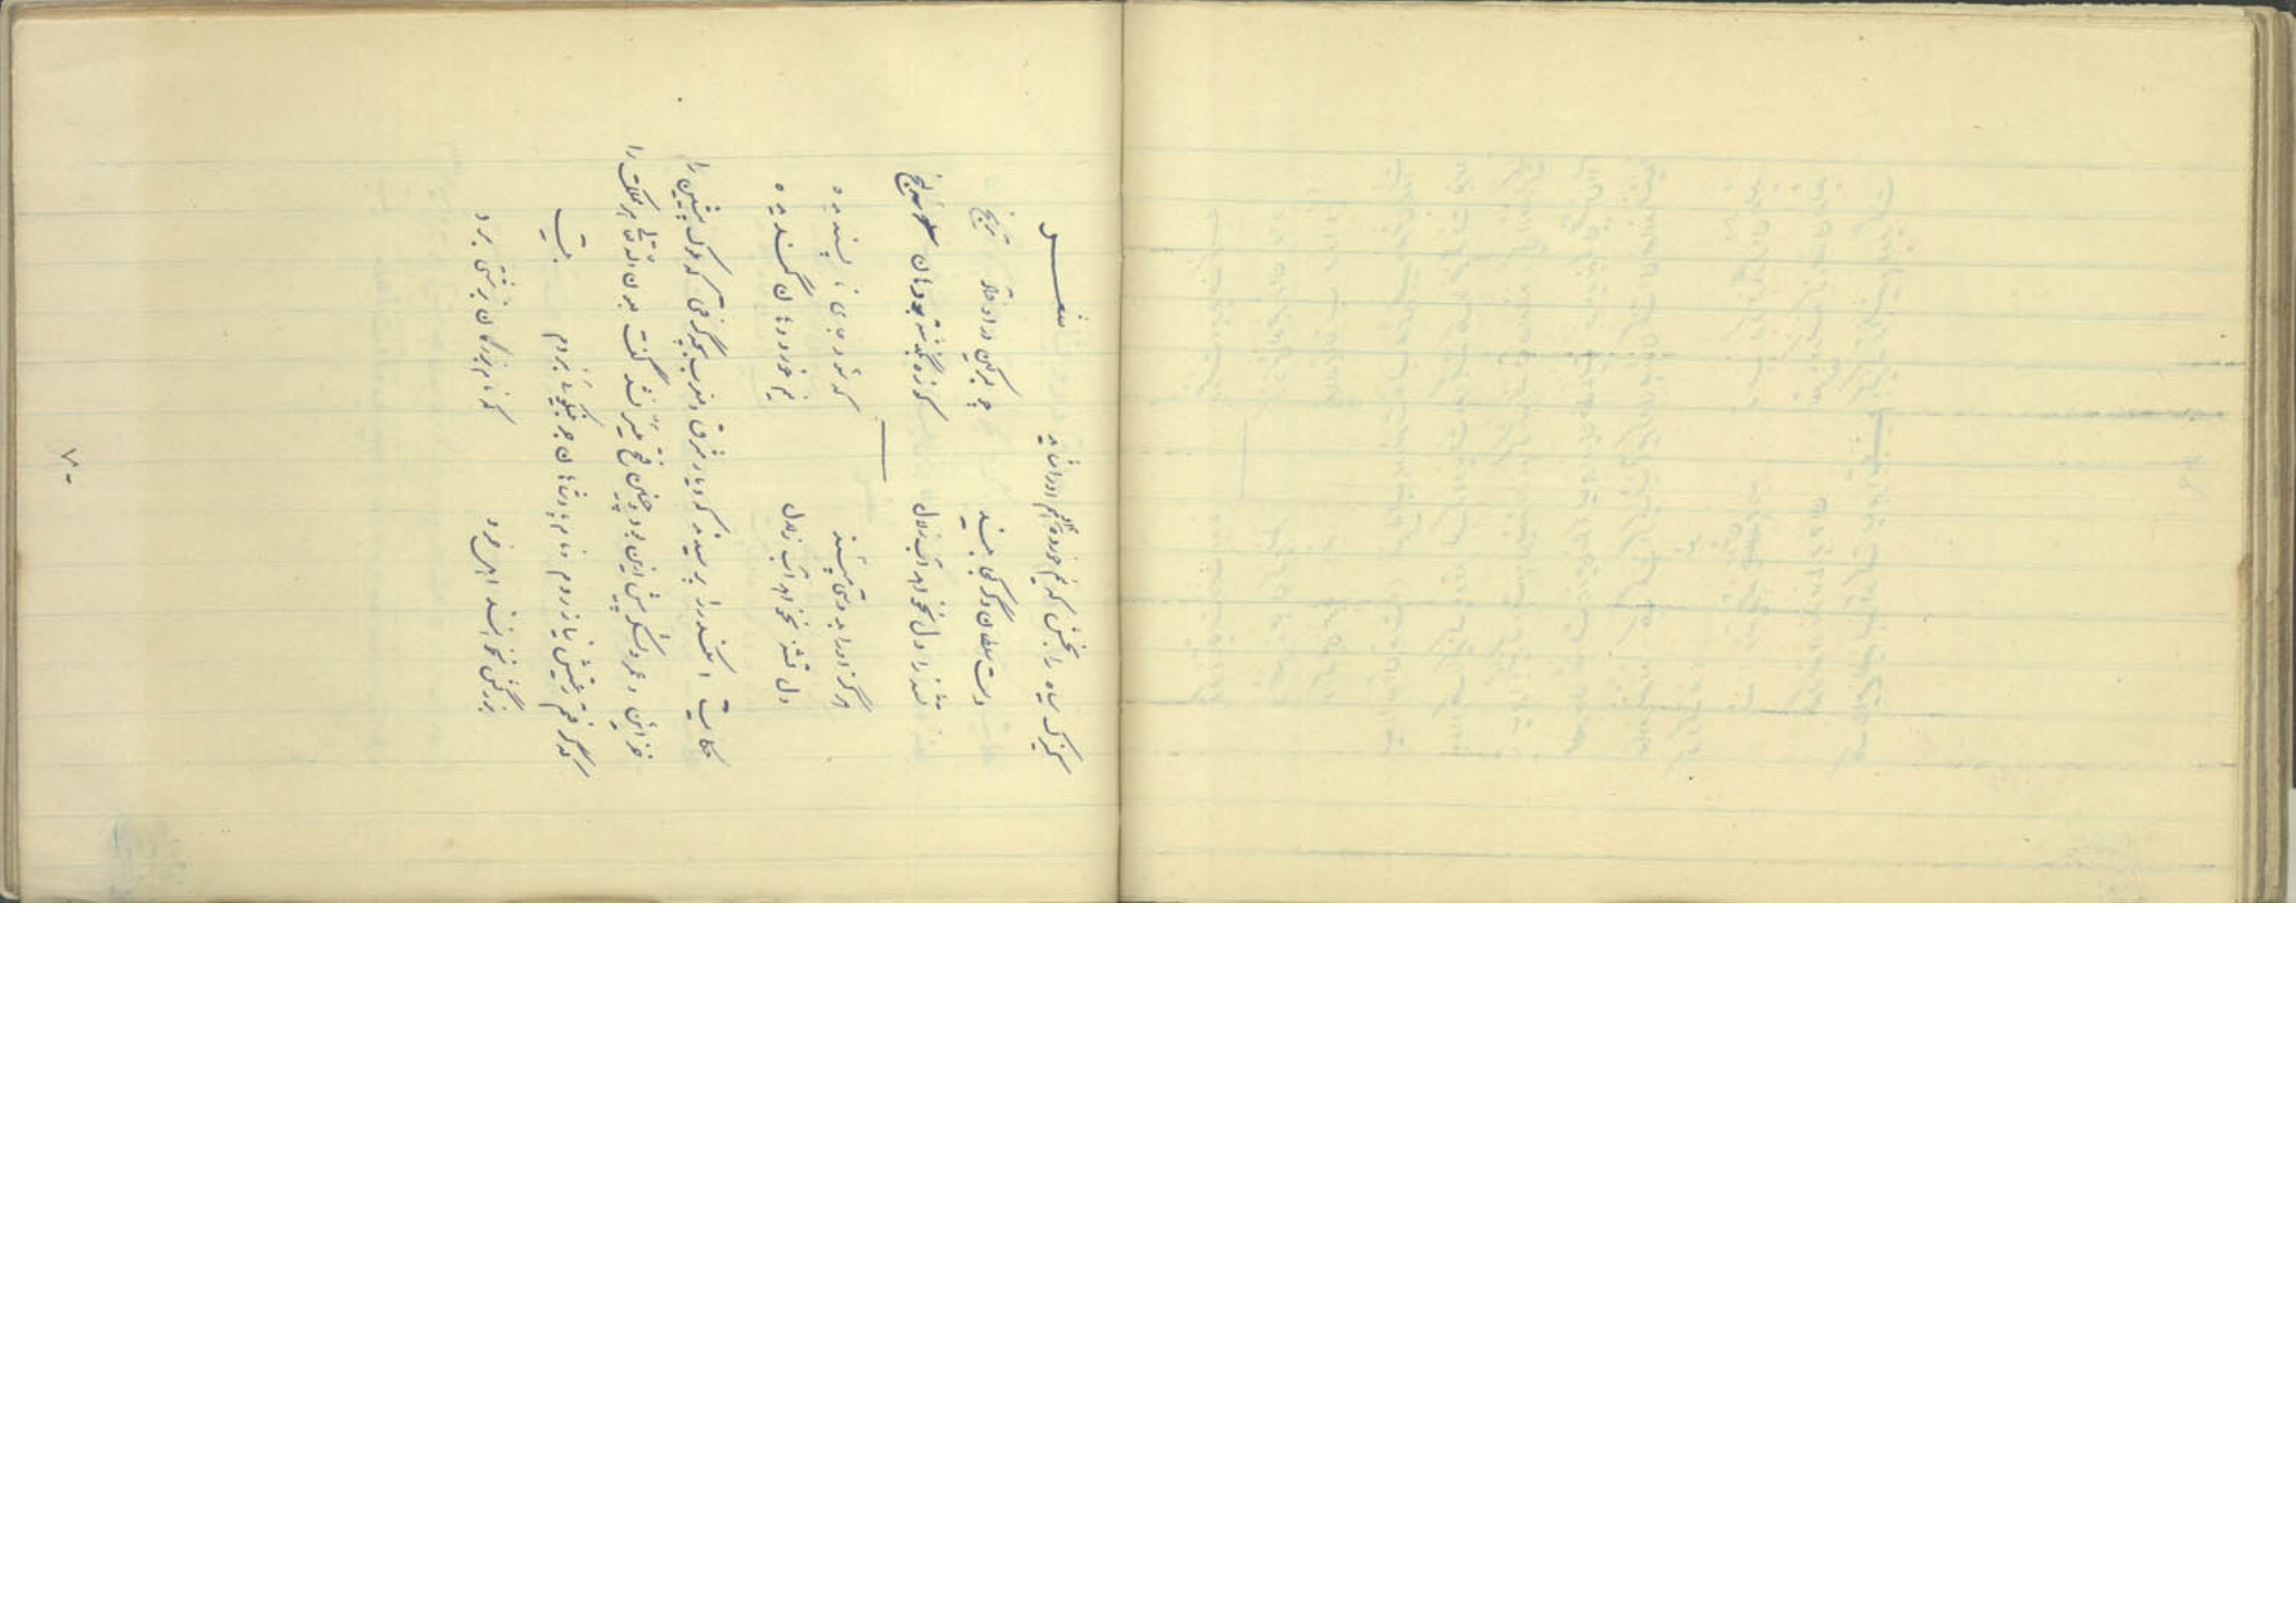 کنیزک سیاه را ببخش که نیم خورده هم او را شاید شعر
دست سلطان دگر کجا بیند چو بسرگین در اوفتد ترنج
تشنه را دل نخواهد آب زلال کوزه بگذشته بر دهان سکنج
هرگز او را بدوستی مپسند که رود جای ناپسندیده
دل تشنه نخواهد آب زلال نیم خورد دهان گندیده
حکایت اسکندر را پرسیدند که دیار مشرق و مغرب بچه گرفتی که ملوک پیشین را
خزاین و عمر و لشکر بیش ازین بود و چنین فتحی میسر نشد گفت بعون الله تعالی هر مملکت را
که گرفتم رعیتش نیازردم و نام پادشاهان جز بنیکوئی نبردم بیت
بزرگش نخوانند اهل خرد که نام بزرگان بزشتی برد
۷۰